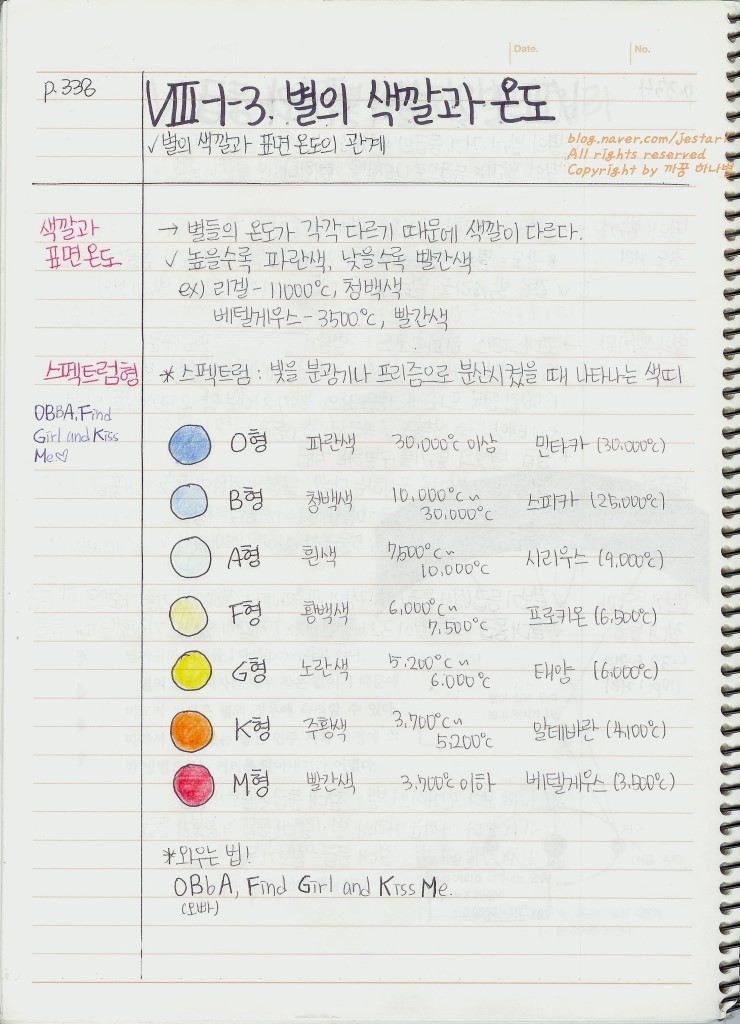 Date.
No.
p.338
Ⅷ-1-3. 별의 색깔과 온도
✓별의 색깔과 표면 온도의 관계
blog.naver.com/jestar
All rights reserved
Copyright by 까꿍 하나별
색깔과
표면온도
→ 별들의 온도가 각각 다르기 때문에 색깔이 다르다.
✓ 높을수록 파란색, 낮을수록 빨간색
ex) 리겔 - 11000℃, 청백색
베텔게우스 - 3500℃, 빨간색
스펙트럼형
*스펙트럼 : 빛을 분광기나 프리즘으로 분산시켰을 때 나타나는 색띠
OBBA, Find
Girl and Kiss
Me♡
O형 파란색 30,000℃ 이상 민타카 (30,000℃)
B형 청백색 10,000℃~ 30,000℃ 스피카 (25,000℃)
A형 흰색 7,500℃~ 10,000℃ 시리우스 (9,000℃)
F형 황백색 6,000℃~ 7,500℃ 프로키온 (6,500℃)
G형 노란색 5,200℃~ 6,000℃ 태양 (6,000℃)
K형 주황색 3,700℃~ 5,200℃ 알데바란 (4,100℃)
M형 빨간색 3,700℃ 이하 베텔게우스 (3,500℃)
*외우는 법!
OBbA, Find Girl and Kiss Me.
(오빠)